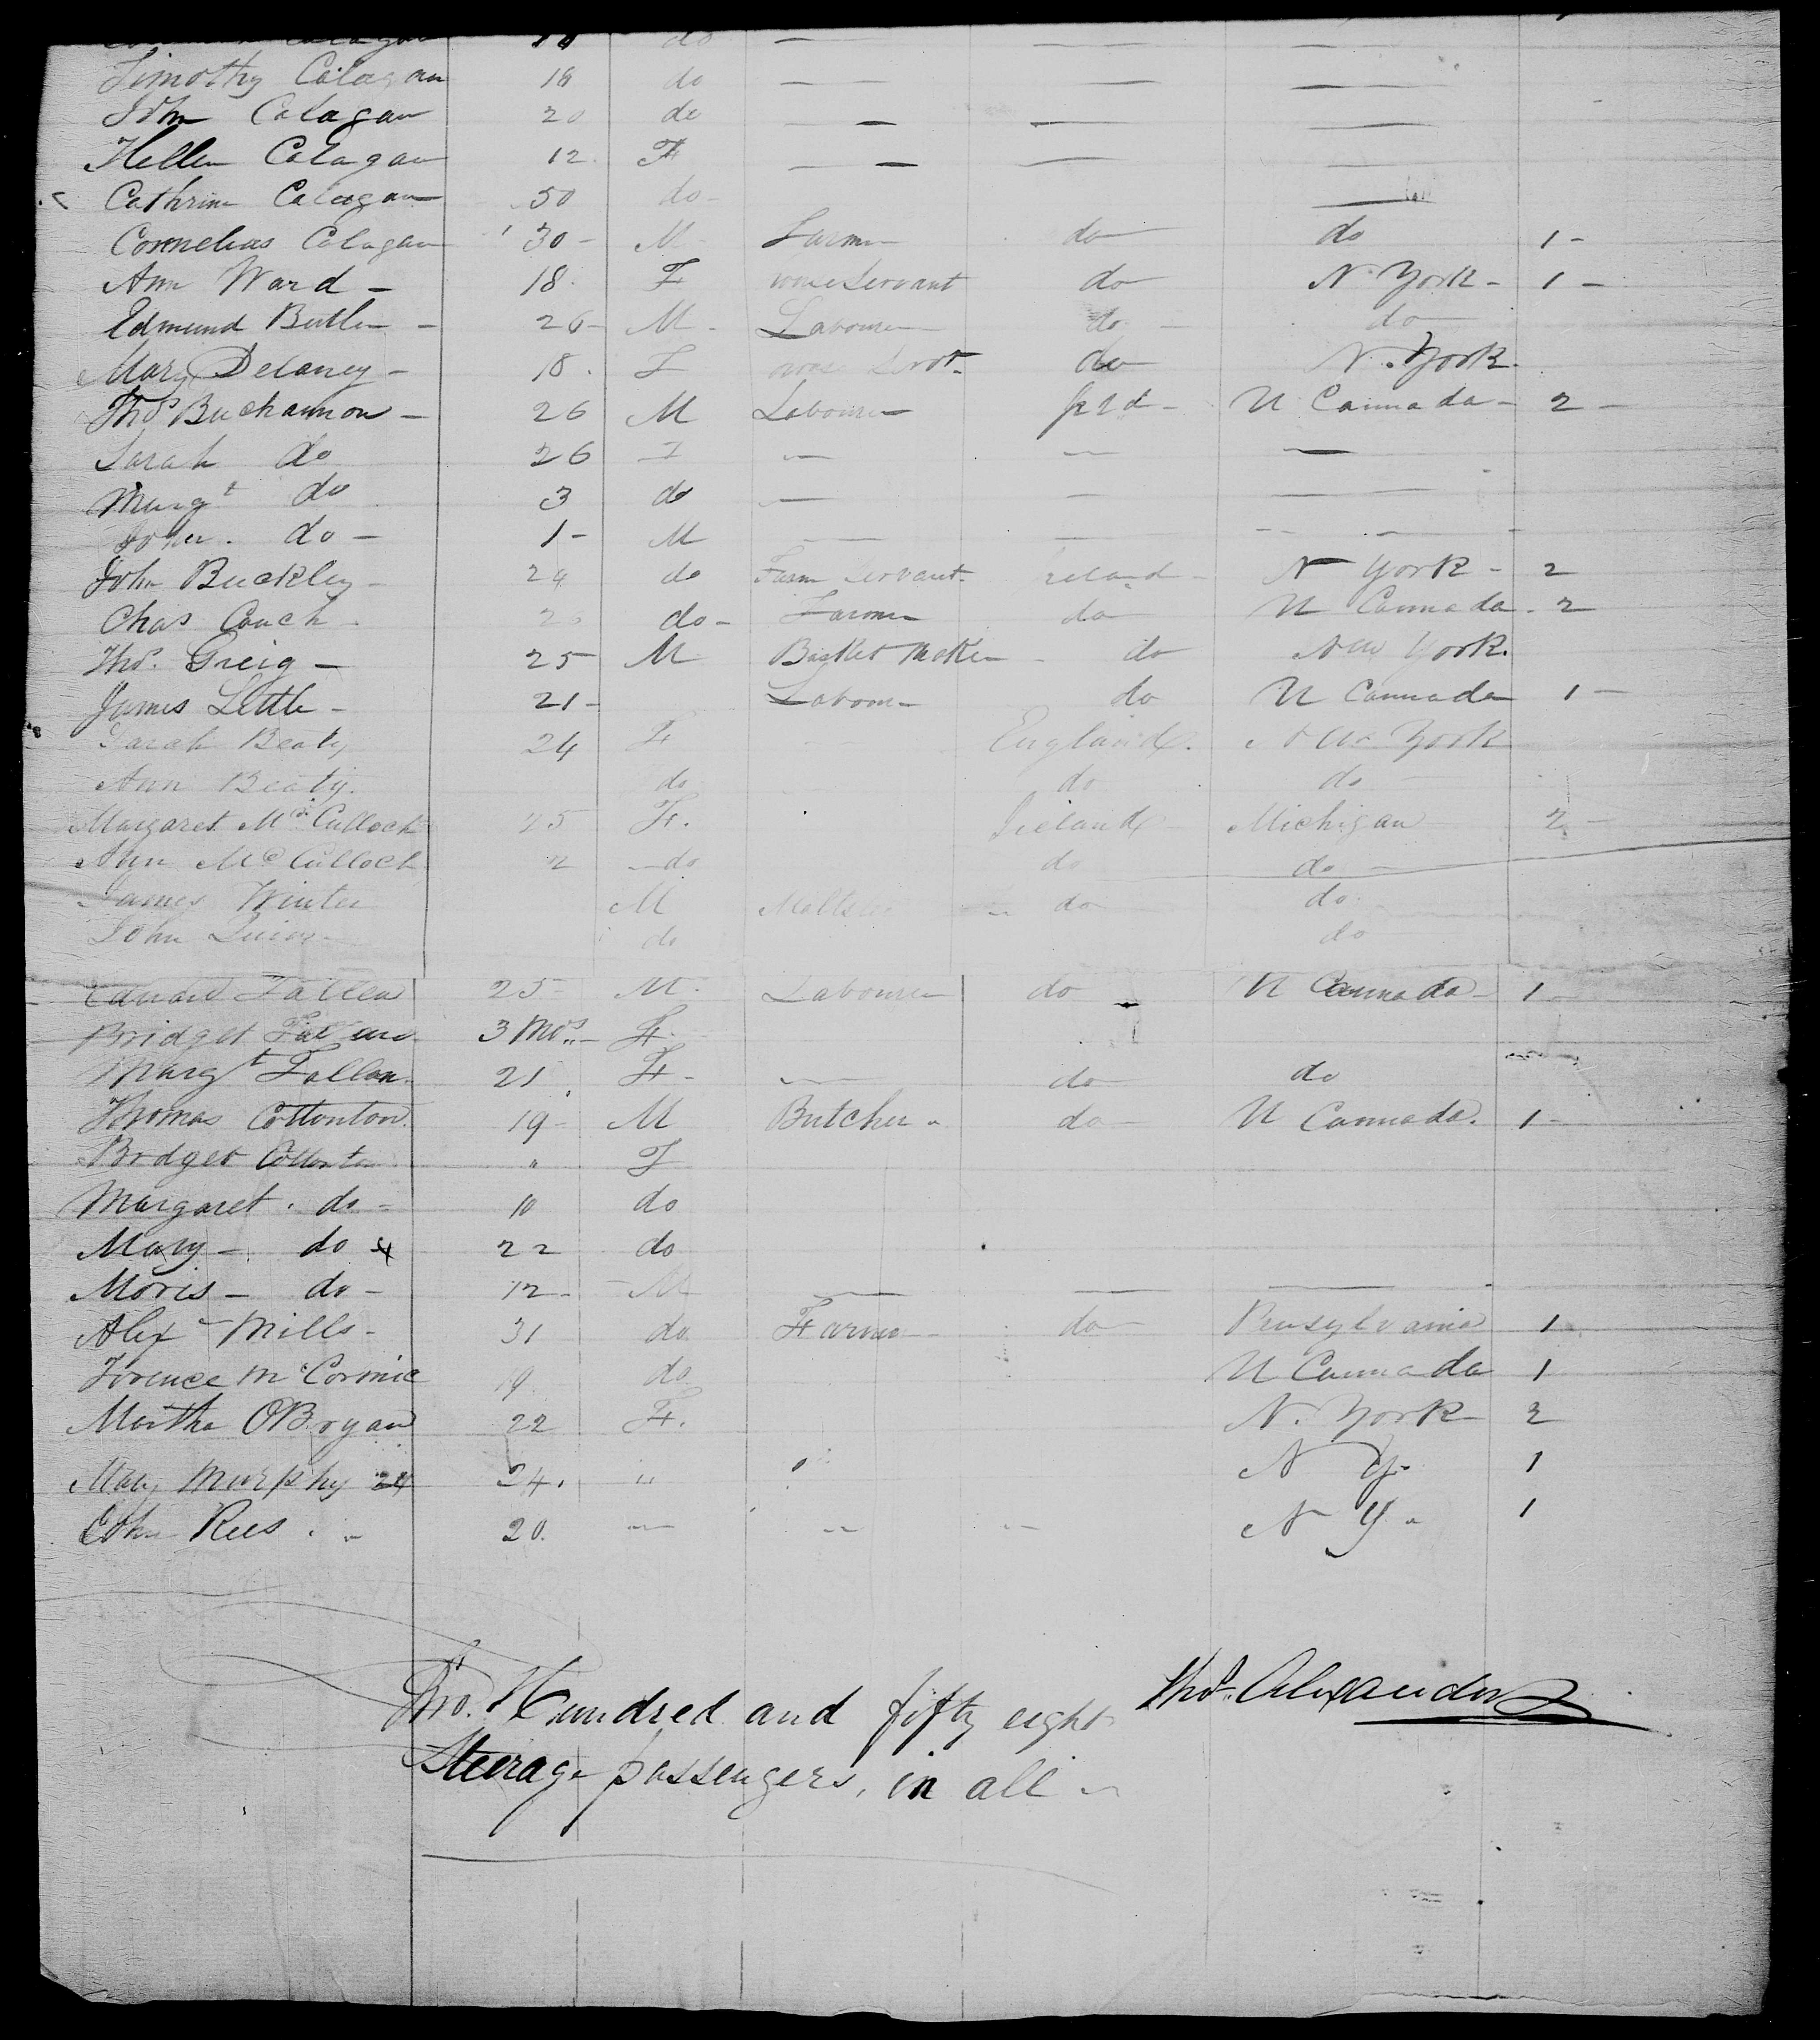 Calagan 18 do — — —
Timothy Calagan 18 do — — —
John Calagan 20 do — — — —
Hellen Calagan 12. F — — — —
Cathrine Calagan 50 do - —
Cornelius Calagan 30 - M Farmer do do 1 -
Ann Ward - 18. F House Servant do N. York - 1 -
Edmund Butler - 26 - M - Labourer do - do
Mary Delaney - 18. F House Servt. do N. York.
Thos Buchannon - 26 M Labourer Ireld - U Cannada - 2 -
Sarah do 26 F — — —
Margt do 3 do — — —
do - 1 - M — — —
John Buckley - 24 do Farm Servant - Ireland - N York - 2
Chas Couch do - Farmer do U Cannada - 2
Thos. Greig - 25 M Basket Maker - do New York.
James Little - 21 - Labourer do U Cannada 1 -
Sarah Beaty 24 F England. New York
Ann Beaty. do do do
Margaret McCulloch 25 F. Ireland Michigan 2 -
Ann McCulloch 2 - do do do -
James Winter M Maltster do do
John do do
Fallen 25 M. Labourer do U Cannada - 1 -
Bridget Fallen 3 Mos. - F.
Margt Fallon. 21. F - — do do
Thomas Cottonton. 19 - M Butcher do - U Cannada. 1 -
Bridget Cottonton " F
Margaret. do - 10 do
Mary - do 22 do
Moris - do - 12 - M — — —
Alexr Mills - 31 do Farmer - do Pensylvania 1
McCormic 19 do U Cannada 1
Martha OBryan 22 F. N. York 2
Mary Murphy 24 24. " N Y - 1
John Rees. 20. — — — N Y. 1
Two Hundred and fifty eight
Steerage passengers, in all
Thos. Alexander